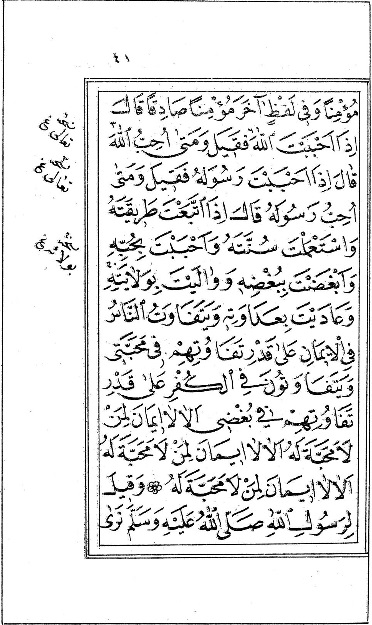 ٤١
مُؤْمِنًا وَفِي لَفْظٍ آخَرَ مُؤْمِنًا صَادِقًا قَالَ
إِذَا أَحْبَبْتَ اللّٰهَ فَقِيلَ وَمَتَى أُحِبُّ اللّٰهَ
قَالَ إِذَا أَحْبَبْتَ رَسُولَهُ فَقِيلَ وَمَتَى
أُحِبُّ رَسُولَهُ قَالَ إِذَا اتَّبَعْتَ طَرِيقَتَهُ
وَاسْتَعْمَلْتَ سُنَّتَهُ وَأَحْبَبْتَ بِحُبِّهِ
وَأَبْغَضْتَ بِبُغْضِهِ وَوَالَيْتَ بِوَلَايَتِهِ
وَعَادَيْتَ بِعَدَاوَتِهِ وَيَتَفَاوَتُ النَّاسُ
فِي الْإِيمَانِ عَلَى قَدْرِ تَفَاوُتِهِمْ فِي مَحَبَّتِي
وَيَتَفَاوَتُونَ فِي الْكُفْرِ عَلَى قَدْرِ
تَفَاوُتِهِمْ فِي بُغْضِي أَلَا لَا إِيمَانَ لِمَنْ
لَا مَحَبَّةَ لَهُ أَلَا لَا إِيمَانَ لِمَنْ لَا مَحَبَّةَ لَهُ
أَلَا لَا إِيمَانَ لِمَنْ لَا مَحَبَّةَ لَهُ وَقِيلَ
لِرَسُولِ اللّٰهِ صَلَّى اللّٰهُ عَلَيْهِ وَسَلَّمَ نَرَى
نسخة
تعالى غ
نسخة
تعالى غ
نسخة